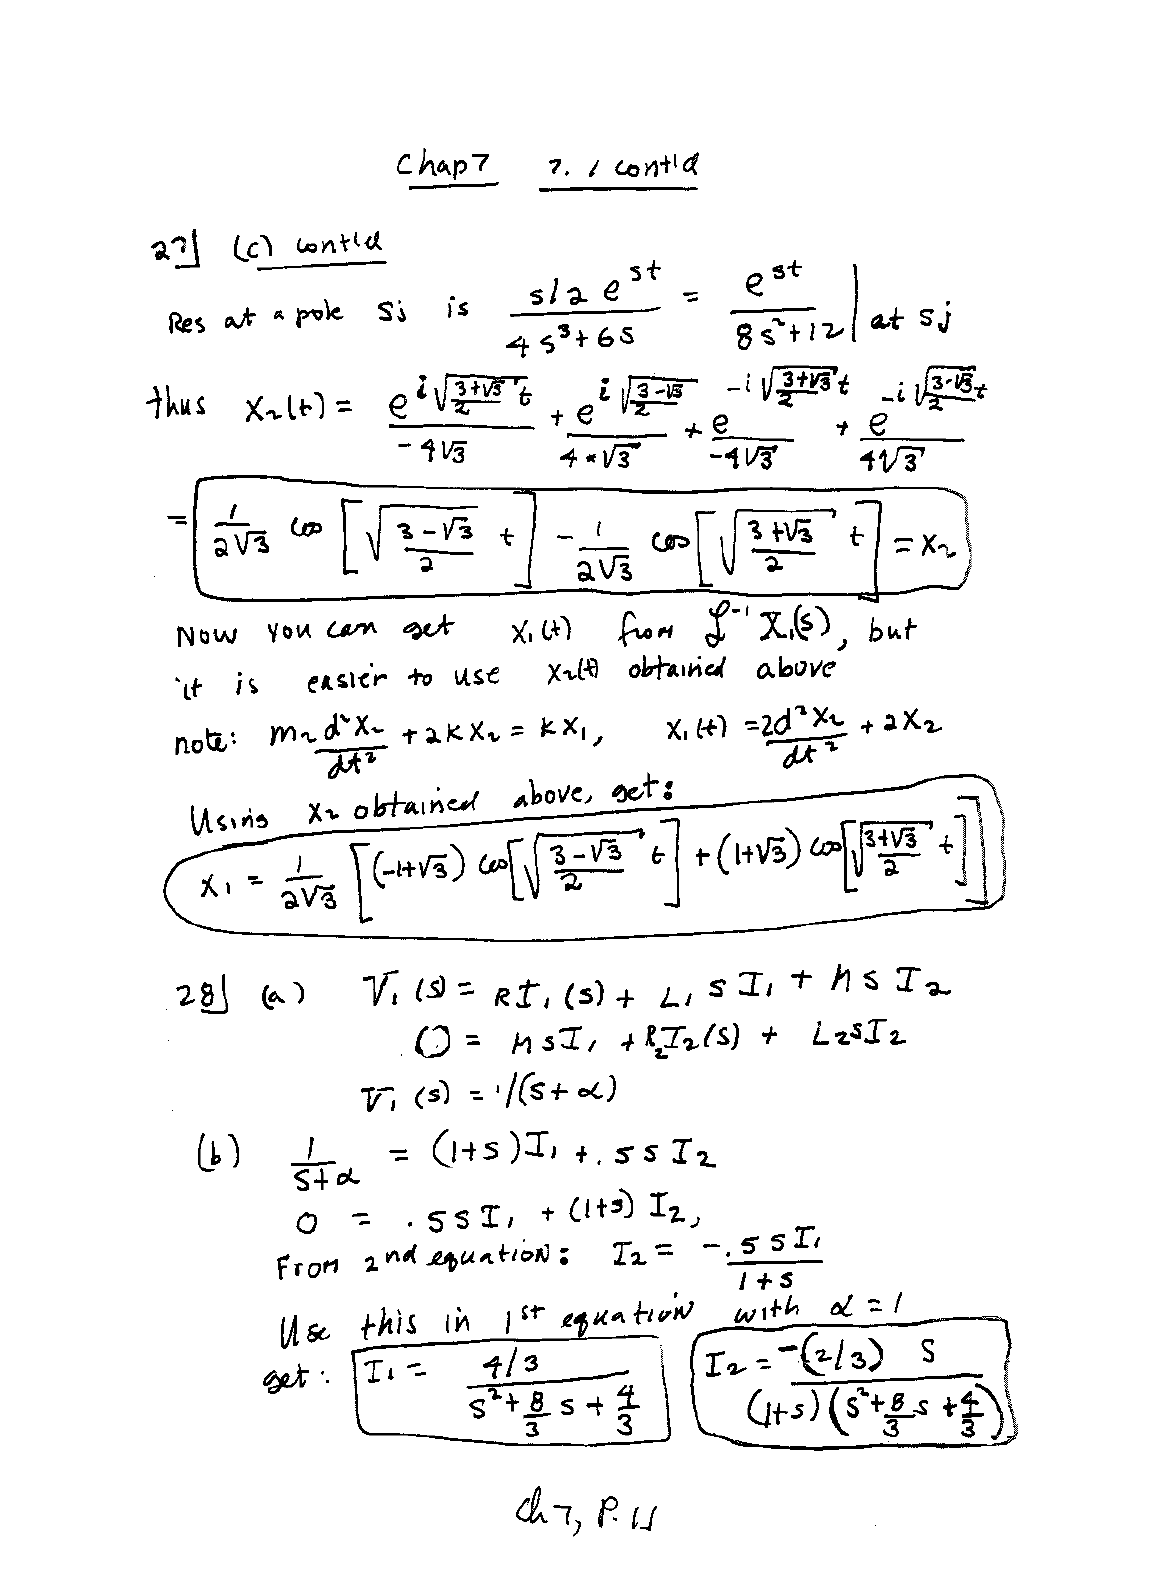 Chap 7 7.1 cont'd
27] (c) cont'd
Res at a pole sj is s/2 e^st / (4s³+6s) = e^st / (8s²+12) | at sj
thus x₂(t) = e^(i√((3+√3)/2) t) / (-4√3) + e^(i√((3-√3)/2)) / (4*√3) + e^(-i√((3+√3)/2) t) / (-4√3) + e^(-i√((3-√3)/2) t) / (4√3)
= 1/(2√3) cos [√((3-√3)/2) t] - 1/(2√3) cos [√((3+√3)/2) t] = x₂
Now you can get x₁(t) from ℒ⁻¹ X₁(s), but
it is easier to use x₂(t) obtained above
note: m₂ d²x₂/dt² + 2kx₂ = kx₁, x₁(t) = 2d²x₂/dt² + 2x₂
Using x₂ obtained above, get:
x₁ = 1/(2√3) [(-1+√3) cos[√((3-√3)/2) t] + (1+√3) cos[√((3+√3)/2) t]]
28] (a) V₁(s) = RI₁(s) + L₁ s I₁ + M s I₂
0 = M s I₁ + R₂I₂(s) + L₂sI₂
V₁(s) = 1/(s+α)
(b) 1/(s+α) = (1+s)I₁ + .5s I₂
0 = .5s I₁ + (1+s) I₂,
From 2nd equation: I₂ = -.5 s I₁ / (1+s)
Use this in 1st equation with α = 1
get: I₁ = (4/3) / (s²+8/3 s+4/3) I₂ = -(2/3) s / ((1+s)(s²+8/3 s+4/3))
Ch 7, P. 11